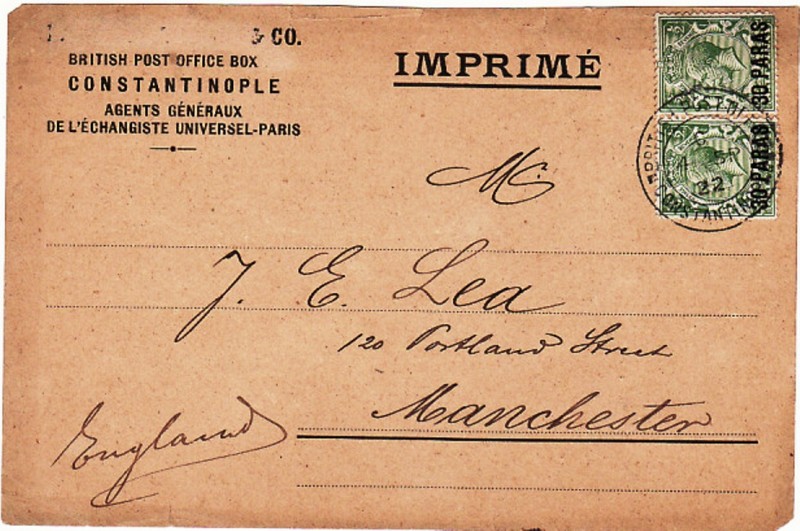 & CO.
BRITISH POST OFFICE BOX
CONSTANTINOPLE
AGENTS GÉNÉRAUX
DE L'ÉCHANGISTE UNIVERSEL-PARIS
IMPRIMÉ
30 PARAS
30 PARAS
SP
22
CONSTANTIN
Mr.
J. E. Lea
120 Portland Street
Manchester
England